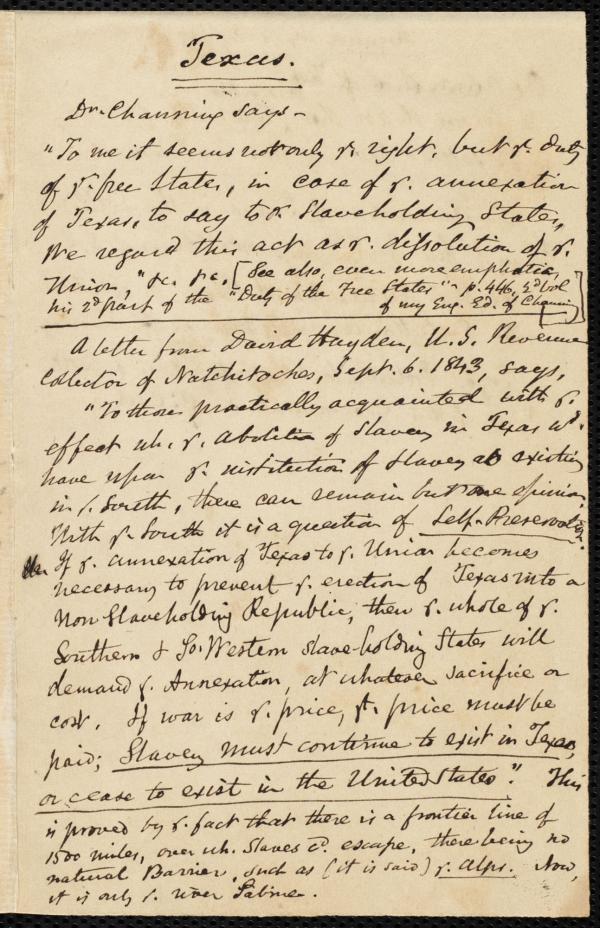 Texas.
Dr. Channing says—
"To me it seems not only yr. right, but yr. duty
of yr. free States, in case of yr. annexation
of Texas, to say to yr. Slaveholding States,
We regard this act as yr. dissolution of yr.
Union," &c. &c. [See also, even more emphatic,
his 2d part of the "Duty of the Free States"- p. 446, 2d vol
of my Eng. Ed. of Channing]
A letter from David Hayden, U.S. Revenue
Collector of Natchitoches, Sept. 6. 1843, says,
"To those practically acquainted with yr.
effect wh. yr. abolition of Slavery in Texas wd.
have upon yr. institution of slavery as existing
in yr. South, there can remain but one opinion.
With yr. South it is a question of Self-Preservation.
If yr. annexation of Texas to yr. Union becomes
necessary to prevent yr. erection of Texas into a
Non-Slaveholding Republic, then yr. whole of yr.
Southern & So. Western slave-holding States will
demand yr. Annexation, at whatever sacrifice or
cost. If war is yr. price, yt. price must be
paid; Slavery must continue to exist in Texas,
or cease to exist in the United States." This
is proved by yr. fact that there is a frontier line of
1500 miles, over wh. slaves cd. escape, there being no
natural Barrier, such as (it is said) yr. Alps. Now,
it is only yr. river Sabine.